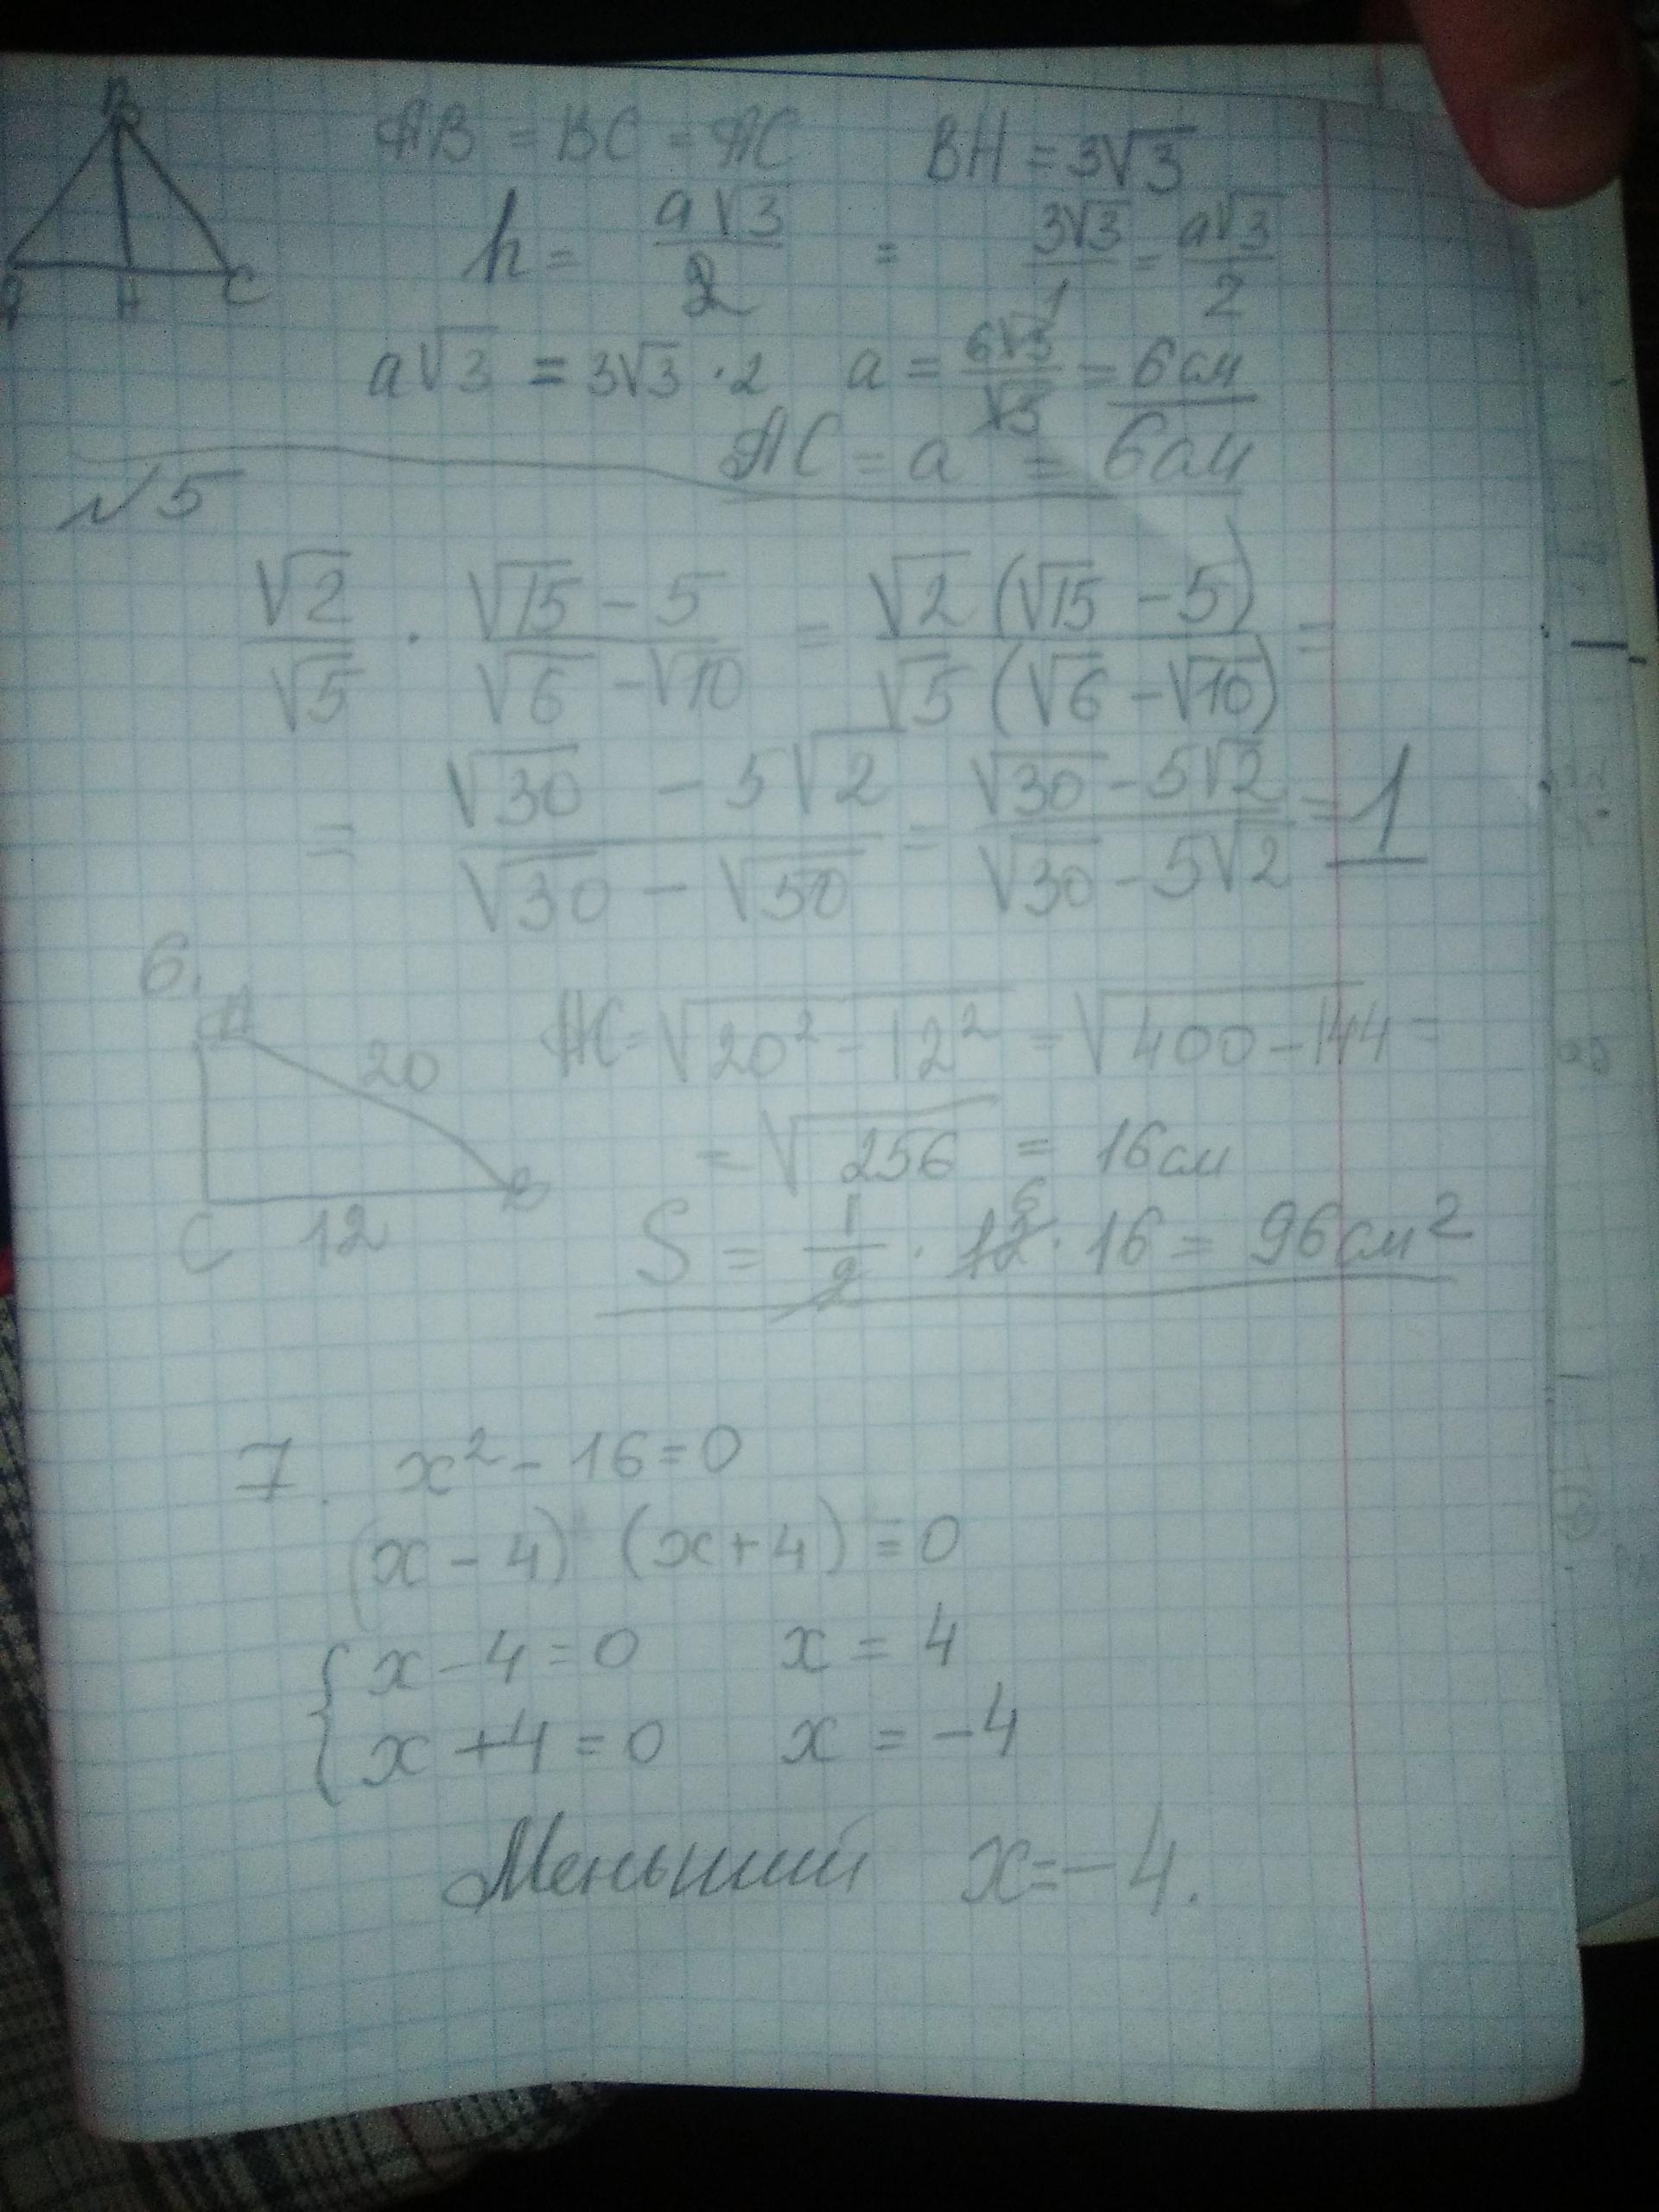 B
AB = BC = AC BH = 3√3
h = a√3/2 = 3√3/1 = a√3/2
A H C
a√3 = 3√3 · 2 a = 6√3/√3 = 6 см
AC = a = 6 см
№5
√2/√5 · (√15 - 5)/(√6 - √10) = √2(√15 - 5)/√5(√6 - √10) =
= (√30 - 5√2)/(√30 - √50) = (√30 - 5√2)/(√30 - 5√2) = 1
6.
A 20 AC = √20² - 12² = √400 - 144 =
= √256 = 16 см
C 12 B
S = 1/2 · 12 6 · 16 = 96 см²
7. x² - 16 = 0
(x - 4) (x + 4) = 0
{ x - 4 = 0 x = 4
x + 4 = 0 x = -4
Меньший x = -4.